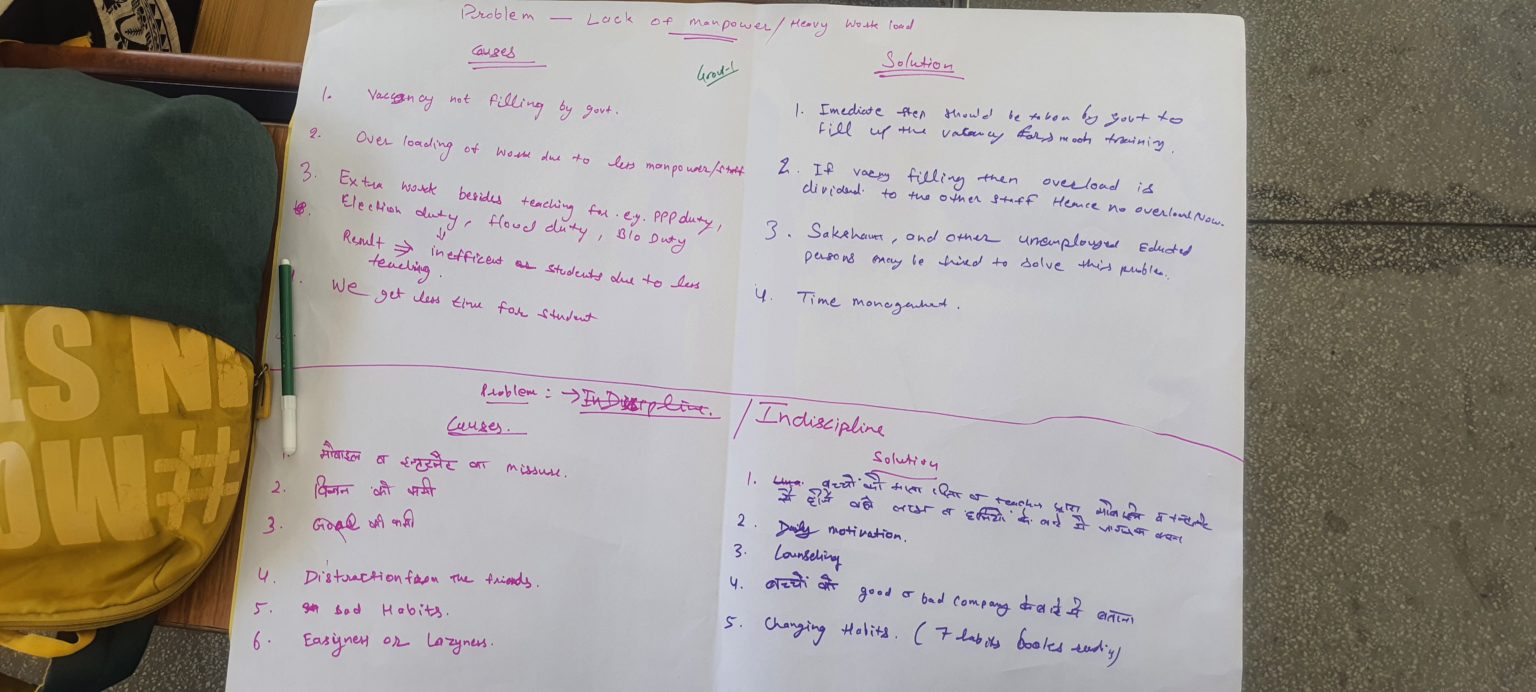 Problem — Lack of manpower/Heavy Work load
Causes
Grout-1
1. Vaccancy not filling by govt.
2. Over loading of work due to less manpower/staff
3. Extra work besides teaching for .e.g. PPP duty,
Election duty, flowd duty, Blo Duty
Result ⇒ inefficent students due to less
teaching.
We get less time for student
Solution
1. Imediate step should be taken by govt to
fill up the vacancy for smooth training.
2. If filling then overload is
dividend. to the other staff Hence no overload Now.
3. Saksham, and other unemployed Educted
persons may be hired to solve this problem.
4. Time management.
Problem : → / Indiscipline
Causes.
1. मोबाइल व इन्टरनेट का missuse.
2. विजन की कमी
3. Goal की कमी
4. Distraction from the friends.
5. bad Habits.
6. Easyness or Lazyness.
Solution
1. बच्चों को माता पिता व teacher द्वारा मोबाइल व इन्टरनेट
से होने वाले लाभ व हानियों के बारे में जागरूक करना
2. Daily motivation.
3. Counseling
4. बच्चों को good व bad company के बारे में बताना
5. Changing Habits. (7 habits books reading)
IN ST
#MOM